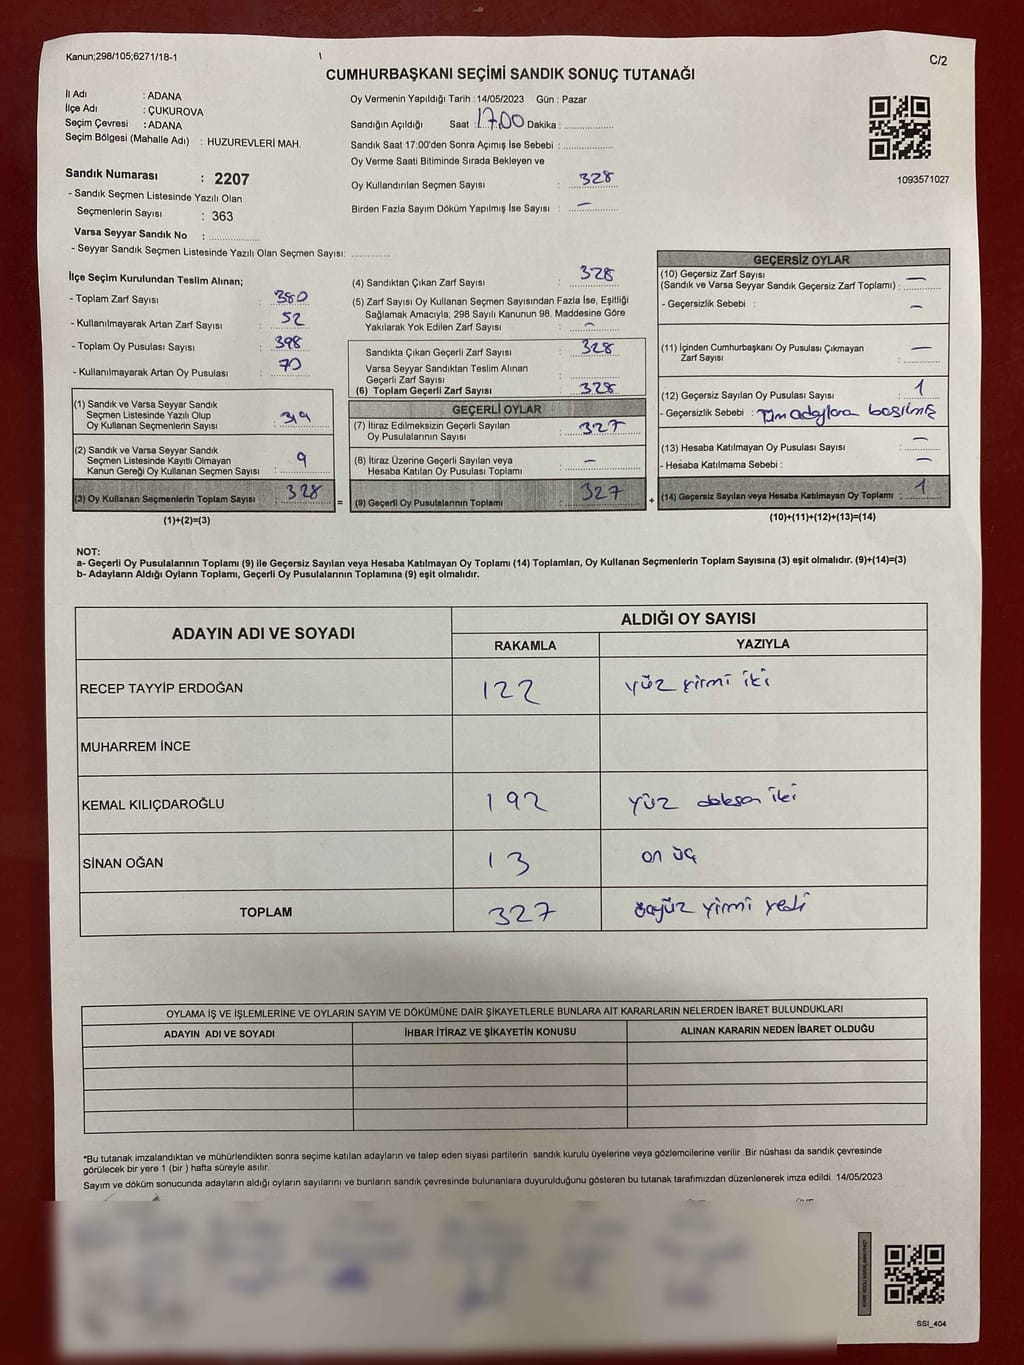 Kanun;298/105;6271/18-1
C/2
CUMHURBAŞKANI SEÇİMİ SANDIK SONUÇ TUTANAĞI
İl Adı : ADANA
İlçe Adı : ÇUKUROVA
Seçim Çevresi : ADANA
Seçim Bölgesi (Mahalle Adı) : HUZUREVLERİ MAH.
Sandık Numarası : 2207
- Sandık Seçmen Listesinde Yazılı Olan
Seçmenlerin Sayısı : 363
Varsa Seyyar Sandık No :
- Seyyar Sandık Seçmen Listesinde Yazılı Olan Seçmen Sayısı:
Oy Vermenin Yapıldığı Tarih : 14/05/2023 Gün : Pazar
Sandığın Açıldığı Saat : 17.00 Dakika :
Sandık Saat 17:00'den Sonra Açımış İse Sebebi :
Oy Verme Saati Bitiminde Sırada Bekleyen ve
Oy Kullandırılan Seçmen Sayısı : 328
Birden Fazla Sayım Döküm Yapılmış İse Sayısı : —
1093571027
İlçe Seçim Kurulundan Teslim Alınan;
- Toplam Zarf Sayısı : 380
- Kullanılmayarak Artan Zarf Sayısı : 52
- Toplam Oy Pusulası Sayısı : 398
- Kullanılmayarak Artan Oy Pusulası : 70
(1) Sandık ve Varsa Seyyar Sandık
Seçmen Listesinde Yazılı Olup
Oy Kullanan Seçmenlerin Sayısı : 319
(2) Sandık ve Varsa Seyyar Sandık
Seçmen Listesinde Kayıtlı Olmayan
Kanun Gereği Oy Kullanan Seçmen Sayısı : 9
(3) Oy Kullanan Seçmenlerin Toplam Sayısı : 328
(1)+(2)=(3)
(4) Sandıktan Çıkan Zarf Sayısı : 328
(5) Zarf Sayısı Oy Kullanan Seçmen Sayısından Fazla İse, Eşitliği
Sağlamak Amacıyla; 298 Sayılı Kanunun 98. Maddesine Göre
Yakılarak Yok Edilen Zarf Sayısı : —
Sandıkta Çıkan Geçerli Zarf Sayısı : 328
Varsa Seyyar Sandıktan Teslim Alınan
Geçerli Zarf Sayısı :
(6) Toplam Geçerli Zarf Sayısı : 328
GEÇERLİ OYLAR
(7) İtiraz Edilmeksizin Geçerli Sayılan
Oy Pusulalarının Sayısı : 327
(8) İtiraz Üzerine Geçerli Sayılan veya
Hesaba Katılan Oy Pusulası Toplamı : —
= (9) Geçerli Oy Pusulalarının Toplamı : 327
GEÇERSİZ OYLAR
(10) Geçersiz Zarf Sayısı
(Sandık ve Varsa Seyyar Sandık Geçersiz Zarf Toplamı) : —
- Geçersizlik Sebebi : —
(11) İçinden Cumhurbaşkanı Oy Pusulası Çıkmayan
Zarf Sayısı : —
(12) Geçersiz Sayılan Oy Pusulası Sayısı : 1
- Geçersizlik Sebebi : Tüm adaylara basılmış
(13) Hesaba Katılmayan Oy Pusulası Sayısı : —
- Hesaba Katılmama Sebebi : —
+ (14) Geçersiz Sayılan veya Hesaba Katılmayan Oy Toplamı : 1
(10)+(11)+(12)+(13)=(14)
NOT:
a- Geçerli Oy Pusulalarının Toplamı (9) ile Geçersiz Sayılan veya Hesaba Katılmayan Oy Toplamı (14) Toplamları, Oy Kullanan Seçmenlerin Toplam Sayısına (3) eşit olmalıdır. (9)+(14)=(3)
b- Adayların Aldığı Oyların Toplamı, Geçerli Oy Pusulalarının Toplamına (9) eşit olmalıdır.
ADAYIN ADI VE SOYADI
ALDIĞI OY SAYISI
RAKAMLA YAZIYLA
RECEP TAYYİP ERDOĞAN 122 yüz yirmi iki
MUHARREM İNCE
KEMAL KILIÇDAROĞLU 192 yüz doksan iki
SİNAN OĞAN 13 on üç
TOPLAM 327 üçyüz yirmi yedi
OYLAMA İŞ VE İŞLEMLERİNE VE OYLARIN SAYIM VE DÖKÜMÜNE DAİR ŞİKAYETLERLE BUNLARA AİT KARARLARIN NELERDEN İBARET BULUNDUKLARI
ADAYIN ADI VE SOYADI İHBAR İTİRAZ VE ŞİKAYETİN KONUSU ALINAN KARARIN NEDEN İBARET OLDUĞU
*Bu tutanak imzalandıktan ve mühürlendikten sonra seçime katılan adayların ve talep eden siyasi partilerin sandık kurulu üyelerine veya gözlemcilerine verilir .Bir nüshası da sandık çevresinde
görülecek bir yere 1 (bir ) hafta süreyle asılır.
Sayım ve döküm sonucunda adayların aldığı oyların sayılarını ve bunların sandık çevresinde bulunanlara duyurulduğunu gösteren bu tutanak tarafımızdan düzenlenerek imza edildi. 14/05/2023
SSI_404